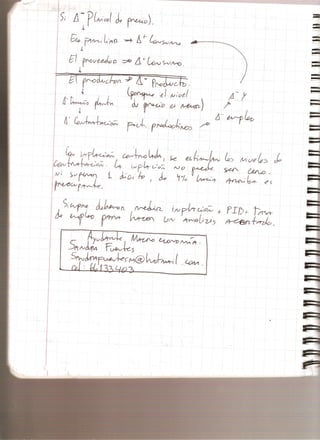 Si Δ⁻ P (nivel de precio).
Eco familias ⇒ Δ⁺ Consumo
El proveedor ⇒ Δ⁺ Consumo.
El productor ⇒ Δ⁻ Producto.
(porque el nivel
de precio es menor)
Δ⁻ planta
Δ⁻ Y
Δ⁻ empleo
Δ⁻ Contratación fact. productivos
inflación controlada, se estimulan los niveles de
contratación. La inflación no puede ser cero.
Ni superar 1 dígito, de 4% hacia arriba es
preocupante.
Siempre debemos medir inflación + PID + Tasa
de empleo para hacer un análisis acertado.
Ayudante Macro economía.
Sandra Fuentes